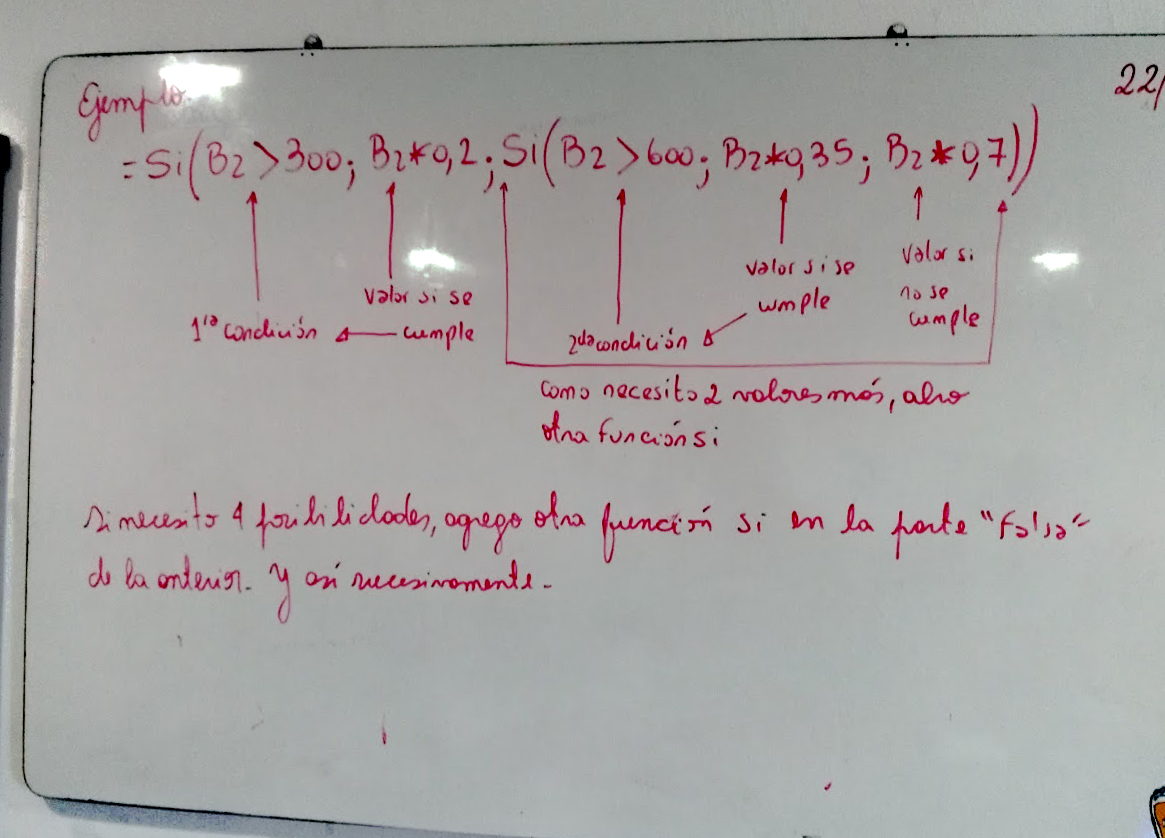 Ejemplo
22/
=Si(B2>300; B2*0,2; Si(B2>600; B2*0,35; B2*0,7))
valor si se
cumple
1ra condición
valor si se
cumple
2da condición
valor si
no se
cumple
como necesito 2 valores más, abro
otra función si
Si necesito 4 posibilidades, agrego otra función si en la parte "falsa"
de la anterior. Y así sucesivamente.